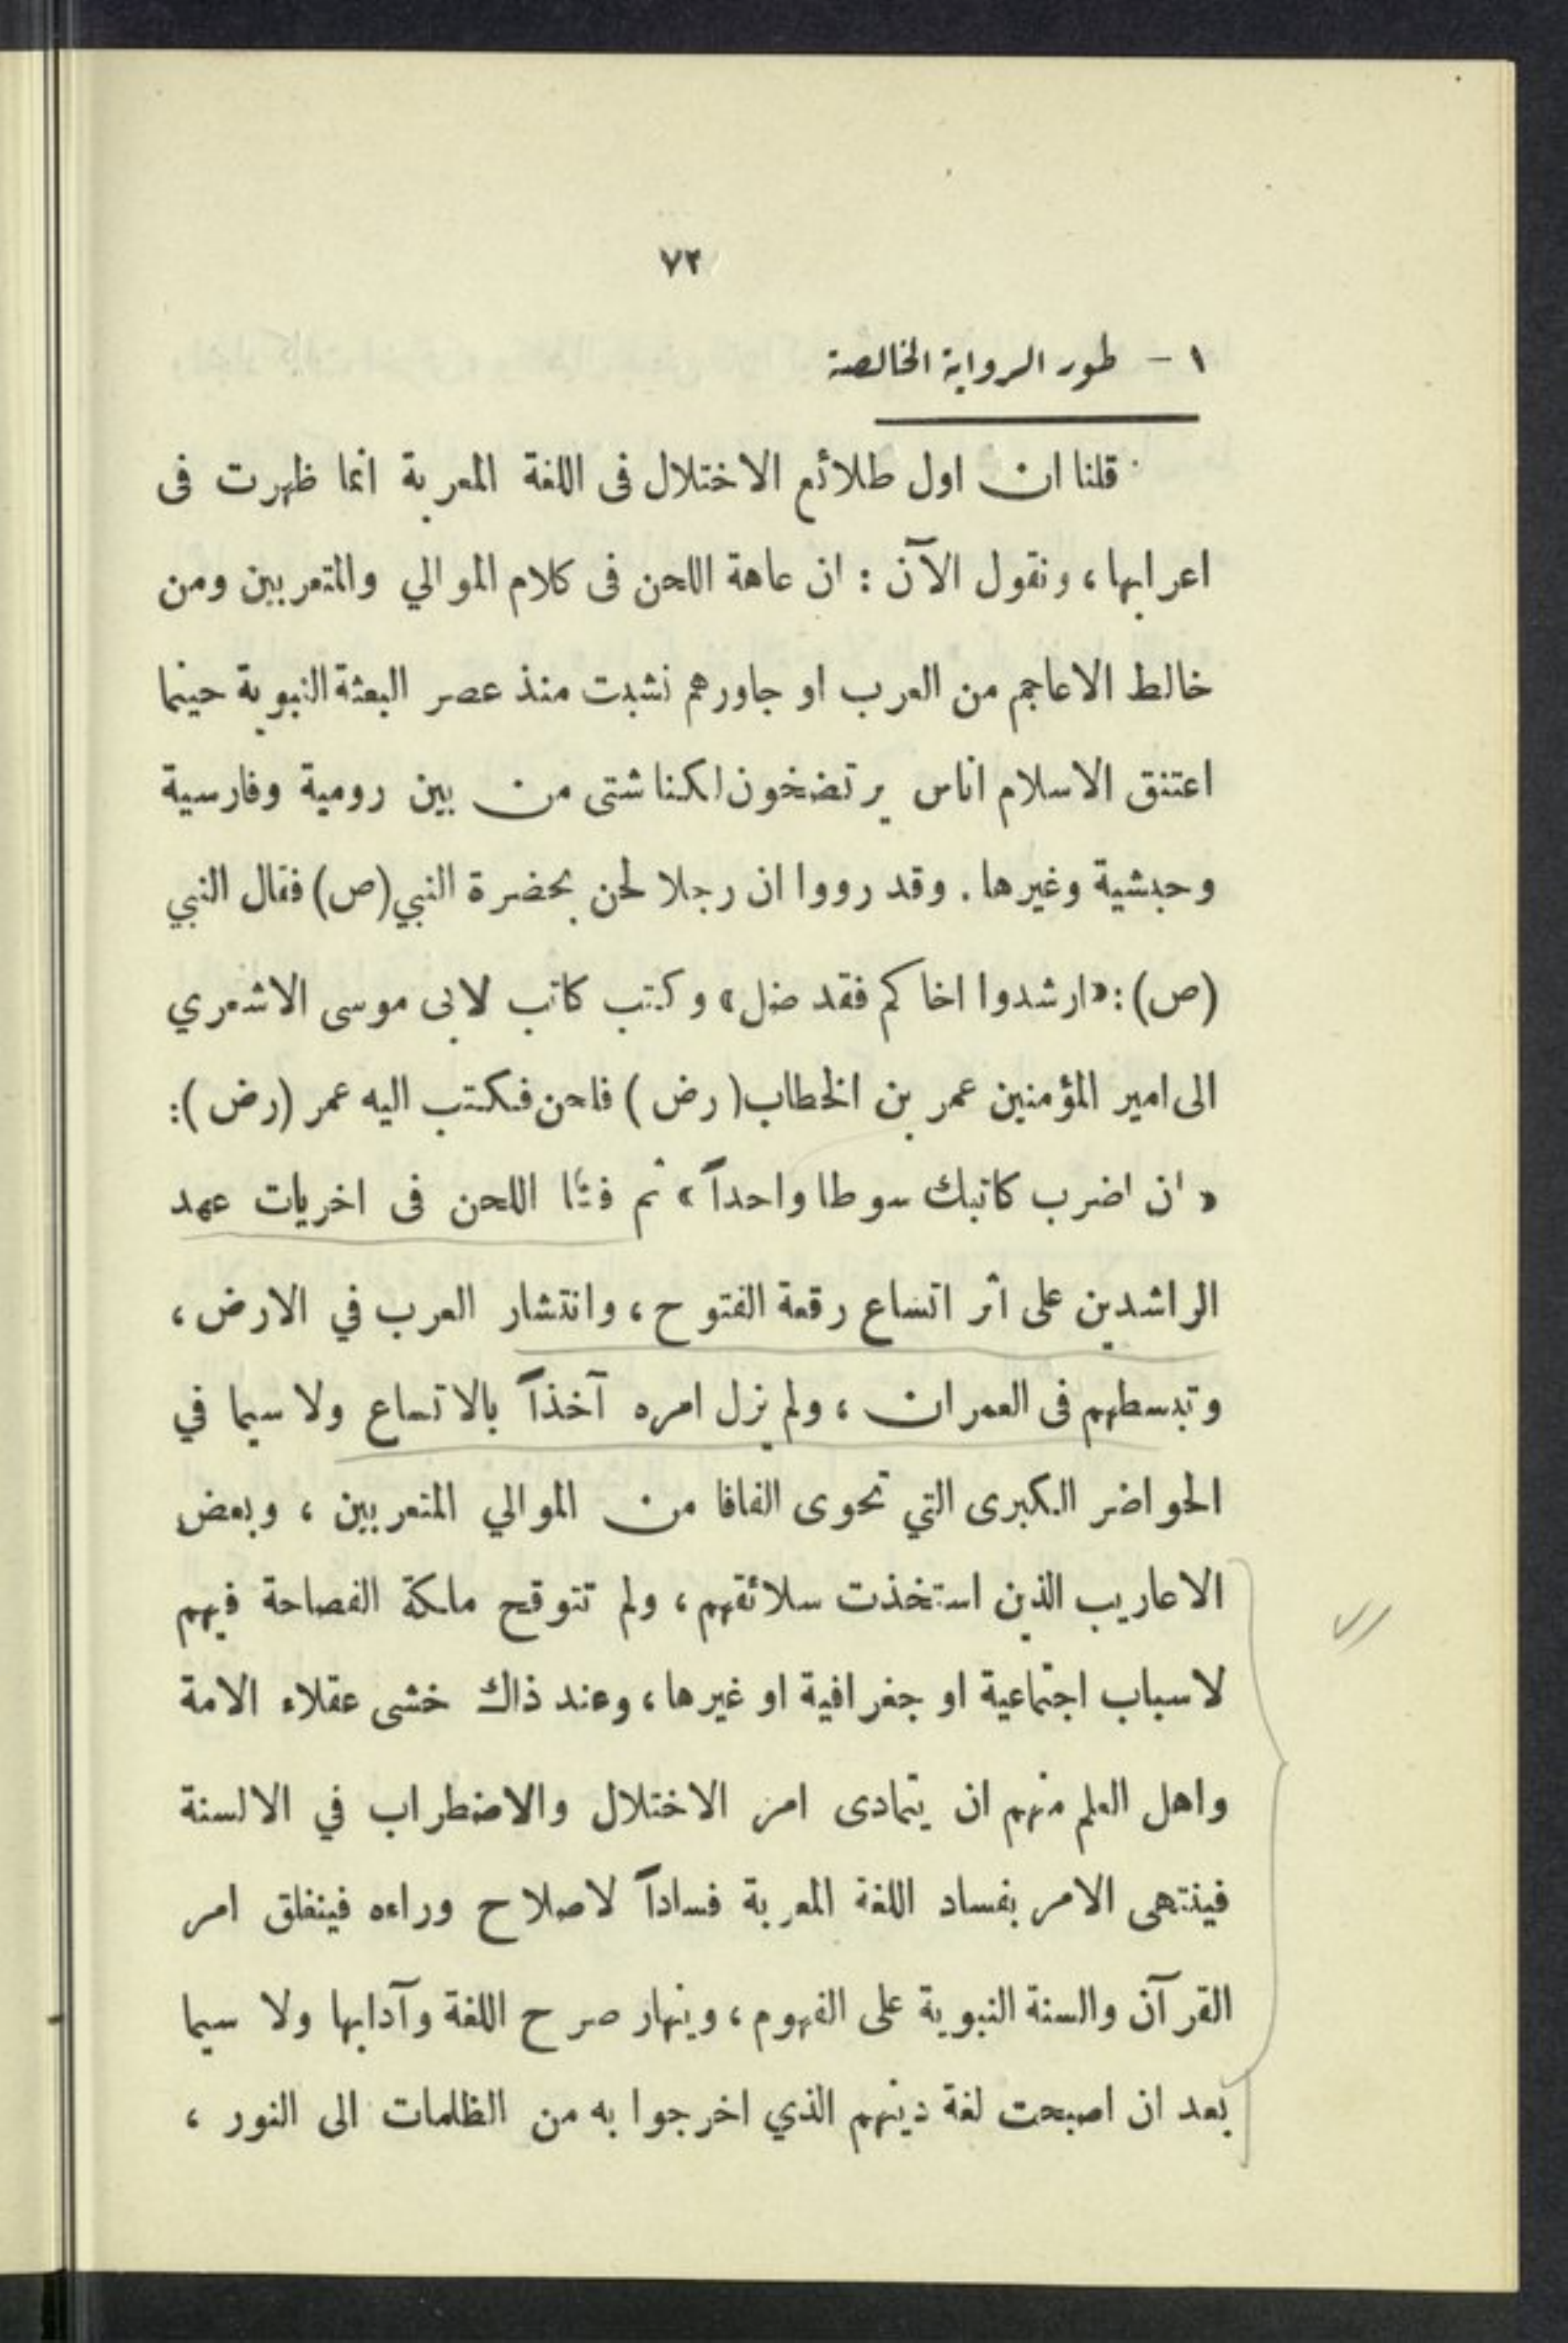 ٧٢
١ - طور الرواية الخالصة
قلنا ان اول طلائع الاختلال فى اللغة المعربة انما ظهرت فى
اعرابها، ونقول الآن : ان عاهة اللحن فى كلام الموالي والمتعربين ومن
خالط الاعاجم من العرب او جاورهم نشبت منذ عصر البعثة النبوية حينما
اعتنق الاسلام اناس يرتضخون لكنا شتى من بين رومية وفارسية
وحبشية وغيرها. وقد رووا ان رجلا لحن بحضرة النبي (ص) فقال النبي
(ص): «ارشدوا اخاكم فقد ضل» وكتب كاتب لابى موسى الاشعري
الى امير المؤمنين عمر بن الخطاب (رض) فلحن فكتب اليه عمر (رض):
« ان اضرب كاتبك سوطا واحداً » ثم فشا اللحن فى اخريات عهد
الراشدين على اثر اتساع رقعة الفتوح، وانتشار العرب في الارض،
وتبسطهم فى العمران، ولم يزل امره آخذاً بالاتساع ولا سيما في
الحواضر الكبرى التي تحوى الفافا من الموالي المتعربين، وبعض
الاعاريب الذين استخذت سلائقهم، ولم تتوقح ملكة الفصاحة فيهم
لاسباب اجتماعية او جغرافية او غيرها، وعند ذاك خشى عقلاء الامة
واهل العلم منهم ان يتمادى امر الاختلال والاضطراب في الالسنة
فينتهى الامر بفساد اللغة المعربة فساداً لاصلاح وراءه فينغلق امر
القرآن والسنة النبوية على الفهوم، وينهار صرح اللغة وآدابها ولا سيما
بعد ان اصبحت لغة دينهم الذي اخرجوا به من الظلمات الى النور،